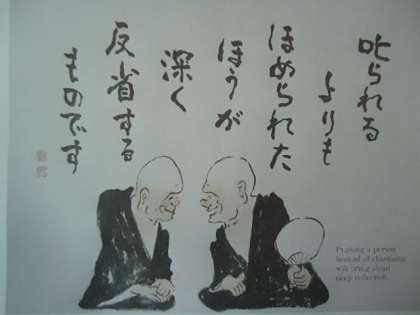 叱られる
よりも
ほめられた
ほうが
深く
反省する
ものです
Praising a person
instead of chastising
will bring about
deep reflection.